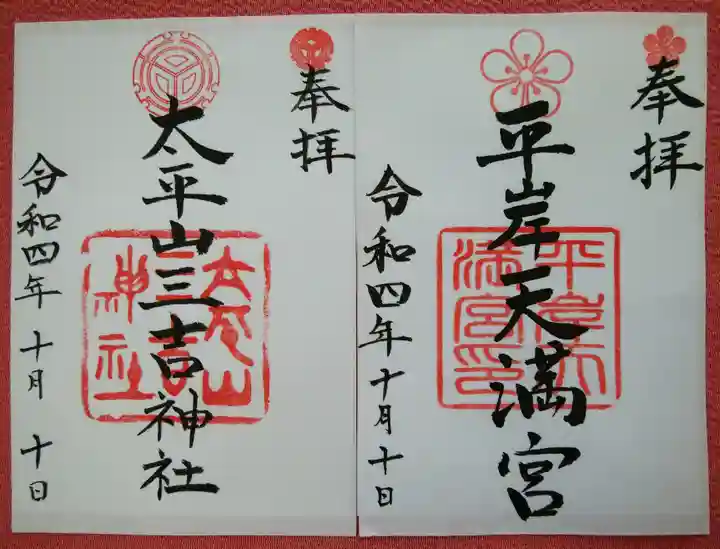 奉拝
平岸天満宮
平岸天
満宮印
令和四年十月十日
奉拝
太平山三吉神社
太平山
三吉
神社
令和四年十月十日